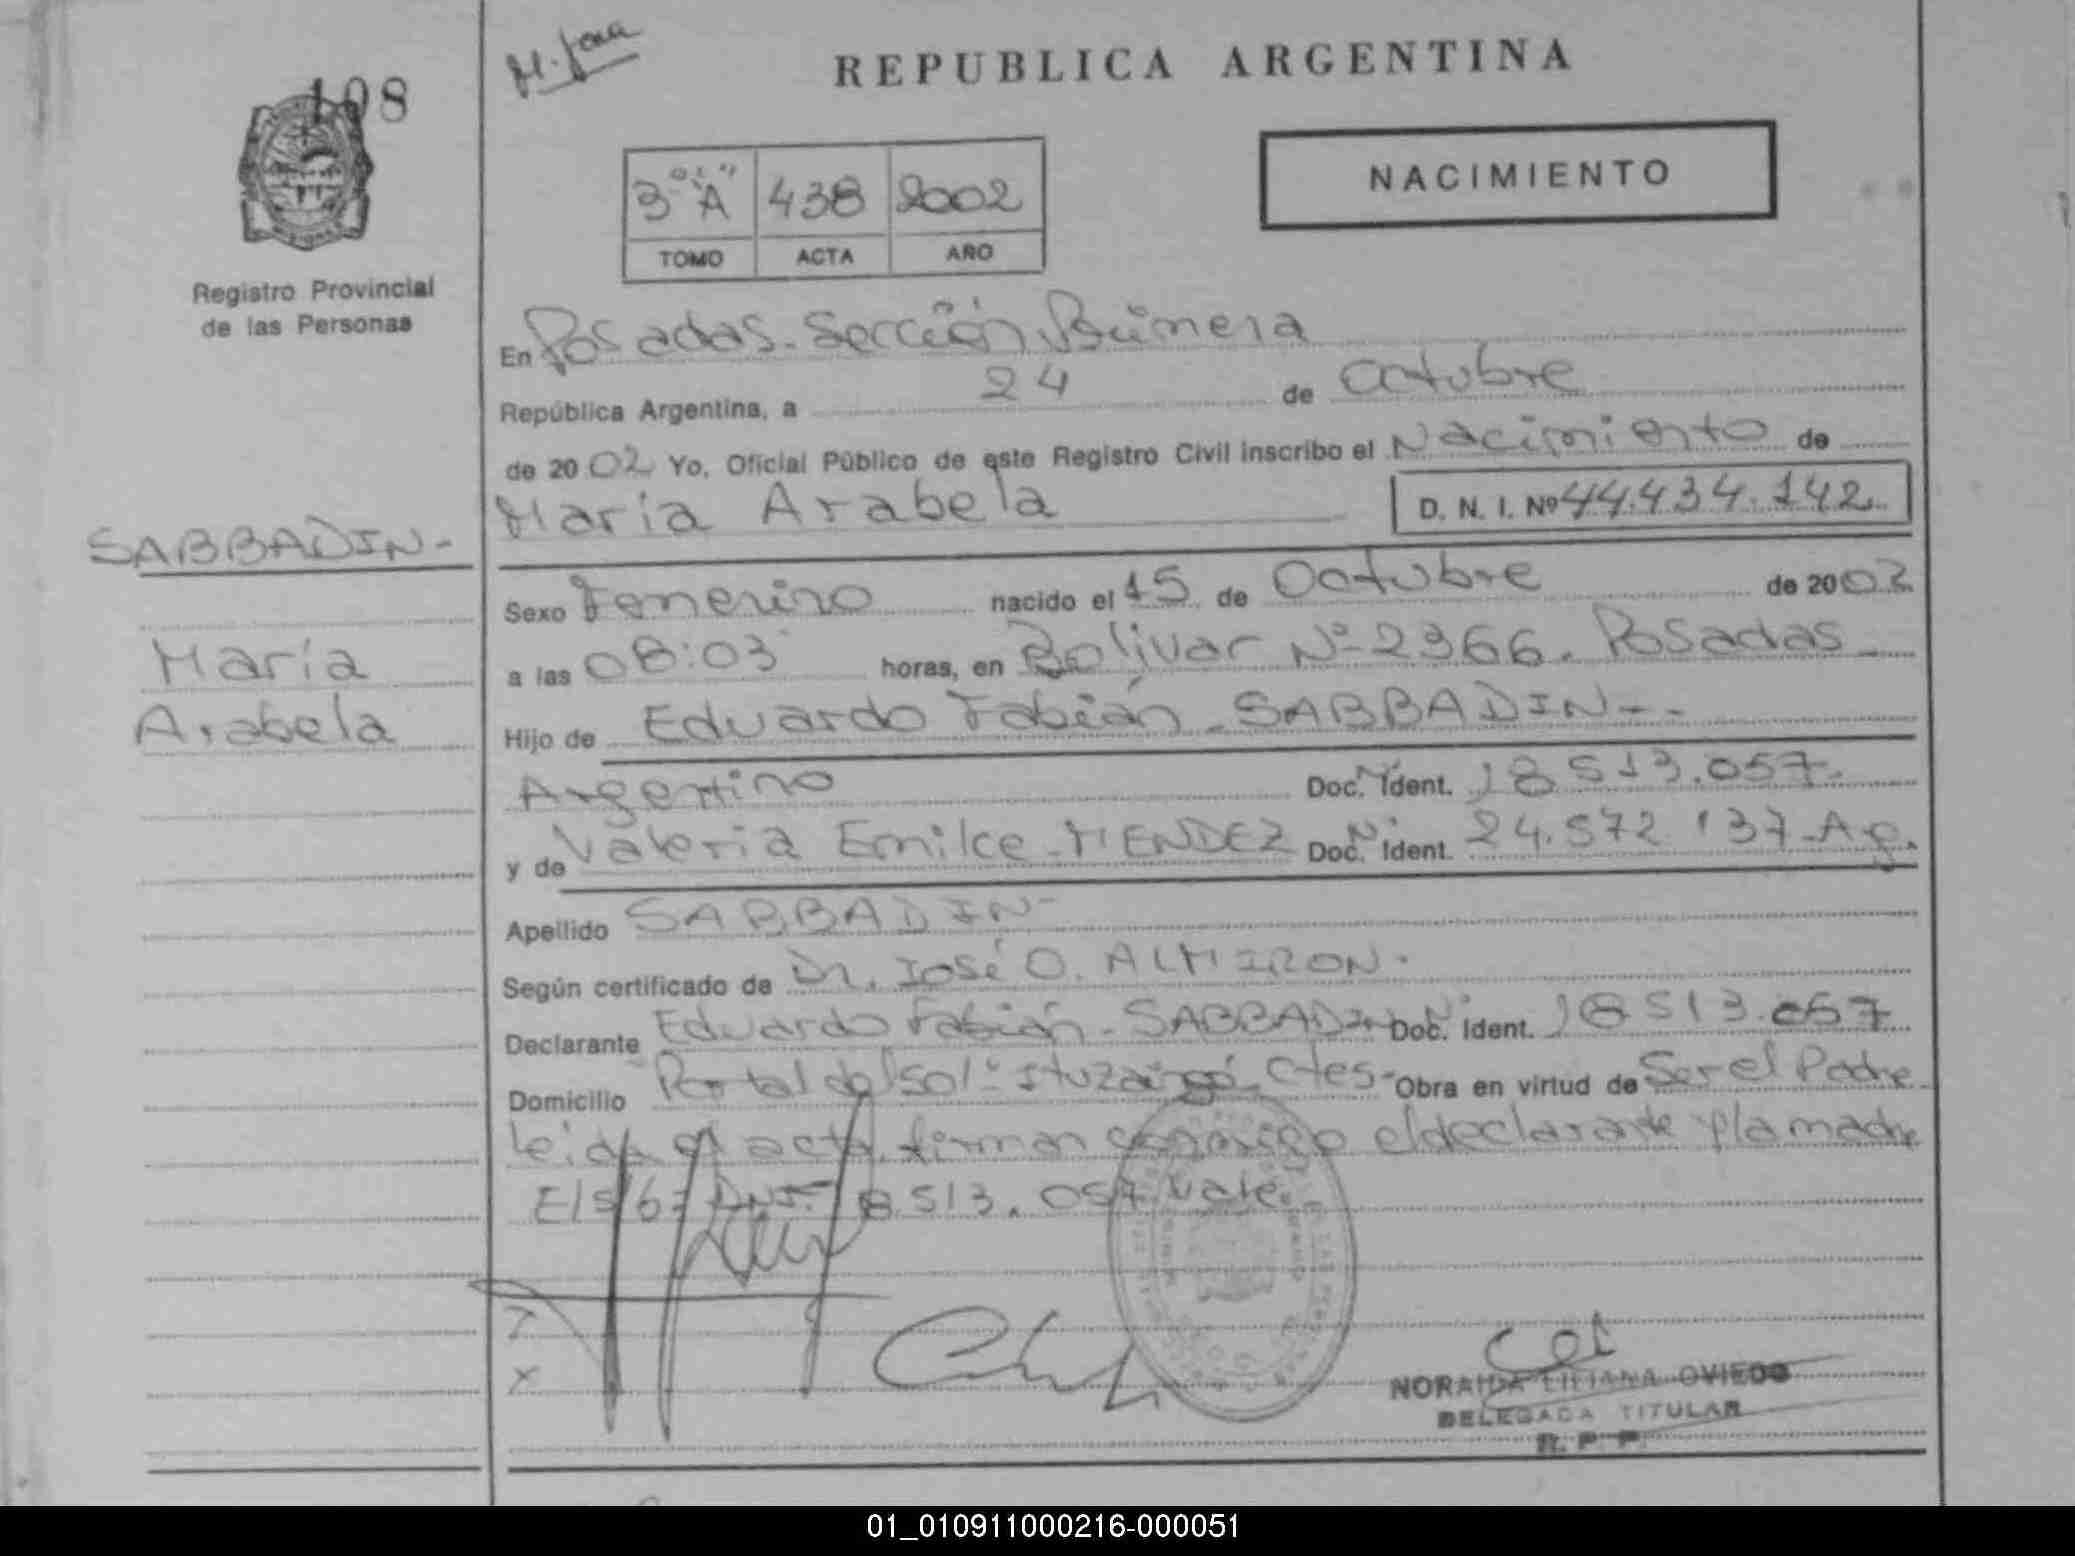 108
M. Jona
REPUBLICA ARGENTINA
NACIMIENTO
3º "A" 438 2002
TOMO ACTA AÑO
Registro Provincial
de las Personas
En Posadas. Sección Primera
República Argentina, a 24 de Octubre
de 2002 Yo, Oficial Público de este Registro Civil inscribo el Nacimiento de
María Arabela D. N. I. Nº 44.434.142
SABBADIN-
María
Arabela
Sexo Femenino nacido el 15 de Octubre de 2002
a las 08:03 horas, en Bolivar Nº 2366. Posadas
Hijo de Eduardo Fabián SABBADIN--
Argentino Doc. Ident. 18513.057.
y de Valeria Emilce MENDEZ Doc. Ident. 24.572 137 Arg.
Apellido SABBADIN-
Según certificado de Dr. José O. ALMIRON.
Declarante Eduardo Fabián SABBADIN Doc. Ident. 18513.057
Domicilio Portal del Sol Ituzaingó Ctes- Obra en virtud de Ser el Padre
Leida el acta firman conmigo el declarante y la madre
E/s/b: DNI. 18.513.057 Vale.
X
NORAIDA LILIANA OVIEDO
DELEGADA TITULAR
R. P. P.
01_010911000216-000051